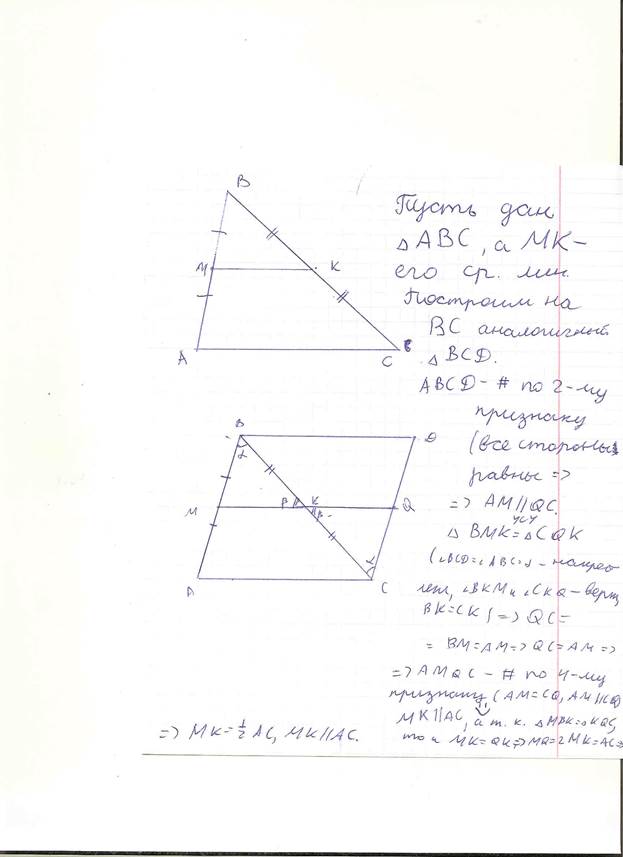 B
M
K
A
C
Пусть дан
△ABC, а MK-
его ср. лин.
Построим на
BC аналогичный
△BCD.
ABCD - # по 2-му
признаку
(все стороны
равны =>
=> AM||QC.
усу
△BMK=△CQK
(∠BCD=∠ABC=α -
леж, ∠BKM и ∠CKQ - верт
BK=CK) => QC=
= BM=AM=>QC=AM=>
=> AMQC - # по 4-му
признаку, (AM=CQ, AM||CQ)
MK||AC, а т. к. △MBK=△KQC,
то и MK=QK=>MQ=2MK=AC=>
=> MK=½ AC, MK||AC.
B
D
α
M
β
K
β
Q
α
A
C